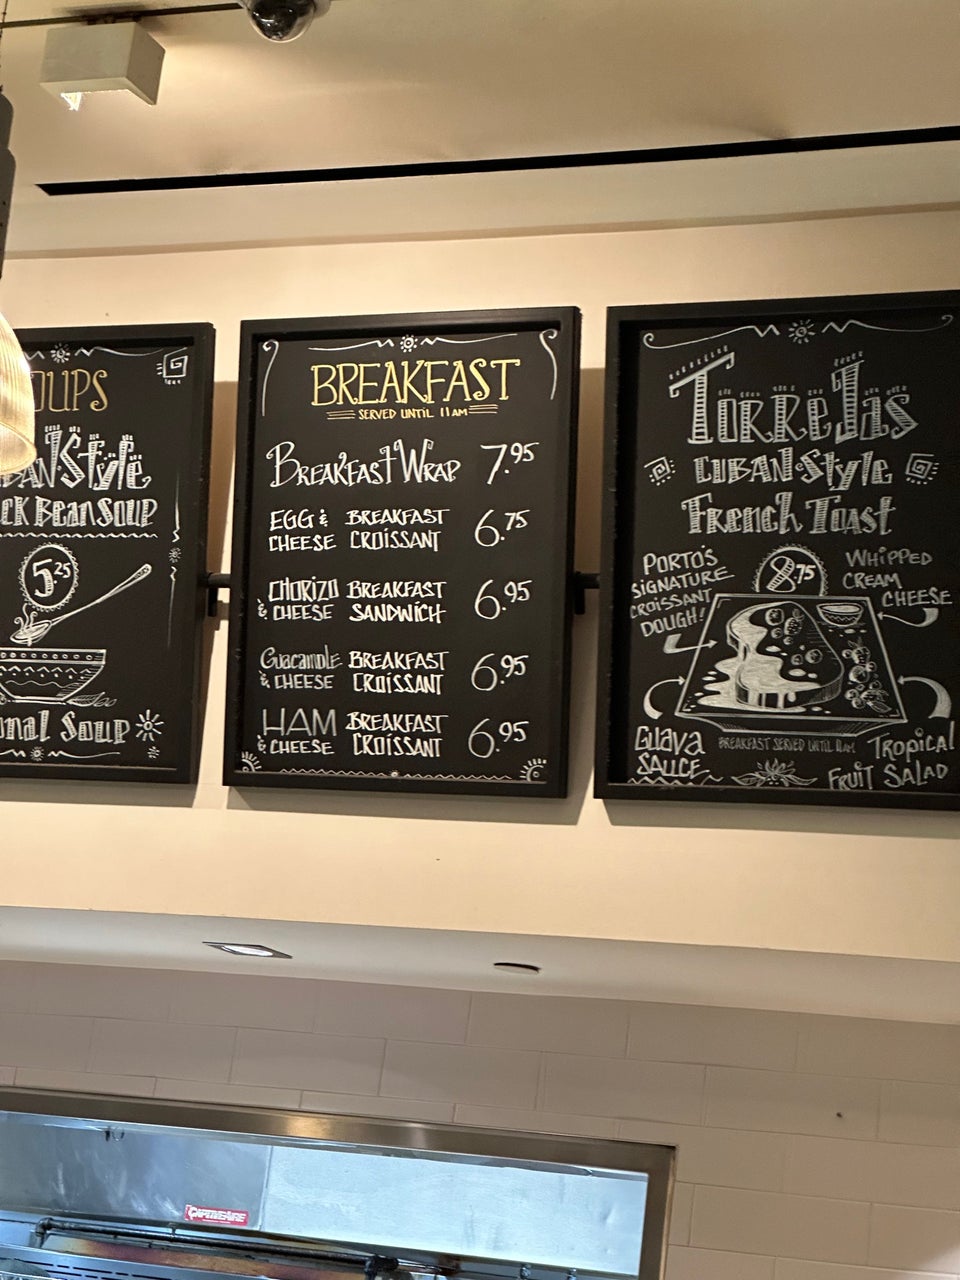 OUPS
BAN·Style
CK BEAN SOUP
5.25
onal Soup
BREAKFAST
SERVED UNTIL 11AM
BREAKFAST WRAP 7.95
EGG & BREAKFAST 6.75
CHEESE CROISSANT
CHORIZO BREAKFAST 6.95
& CHEESE SANDWICH
Guacamole BREAKFAST 6.95
& CHEESE CROISSANT
HAM BREAKFAST 6.95
& CHEESE CROISSANT
TORREJAS
CUBAN·Style
French Toast
PORTO'S
SIGNATURE
CROISSANT
DOUGH!
8.75
WHIPPED
CREAM
CHEESE
GUAVA
SAUCE
BREAKFAST SERVED UNTIL 11AM
TROPICAL
FRUIT SALAD
CAPTIVEAIRE